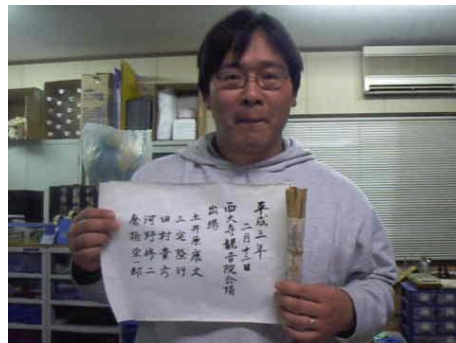 平成三年
二月十二日
西大寺観音院会陽
出場
土井原康文
三宅隆行
田村貴彦
河野修二
倉掛栄一郎